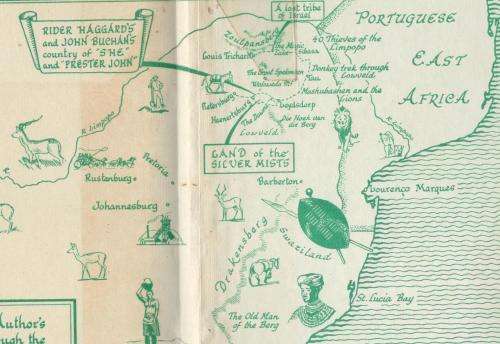 RIDER HAGGARD'S
and JOHN BUCHAN'S
country of "SHE"
and "PRESTER JOHN"
A lost tribe
of Israel
PORTUGUESE
EAST
AFRICA
Zoutpansberg
40 Thieves of the
Limpopo
Louis Trichardt
The Magic
Donkey trek through
Lowveld
Mashubashen and the
Lions
Pietersburg
Haenertsburg
The Downs
Leydsdorp
Die Hoek van
die Berg
Lowveld
R. Limpopo
R. Limpopo
LAND of the
SILVER MISTS
Pretoria
Rustenburg
Johannesburg
Barberton
Lourenço Marques
Drakensberg
Swaziland
St. Lucia Bay
The Old Man
of the Berg
Author's
ough the